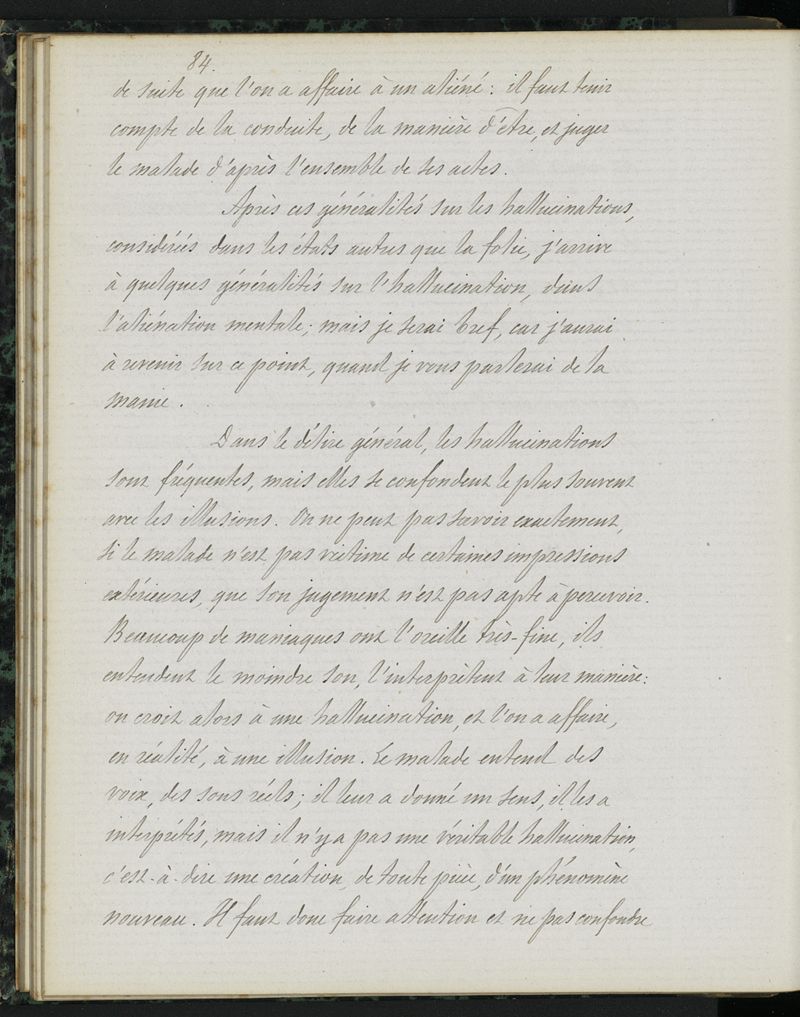 84.
de suite que l'on a affaire à un aliéné : il faut tenir
compte de la conduite, de la manière d'être, et juger
le malade d'après l'ensemble de ses actes.
Après ces généralités sur les hallucinations,
considérées dans les états autres que la folie, j'arrive
à quelques généralités sur l'hallucination, dans
l'aliénation mentale ; mais je serai bref, car j'aurai
à revenir sur ce point, quand je vous parlerai de la
manie.
Dans le délire général, les hallucinations
sont fréquentes, mais elles se confondent le plus souvent
avec les illusions. On ne peut pas savoir exactement,
si le malade n'est pas victime de certaines impressions
extérieures, que son jugement n'est pas apte à percevoir.
Beaucoup de maniaques ont l'oreille très-fine, ils
entendent le moindre son, l'interprètent à leur manière :
on croit alors à une hallucination, et l'on a affaire,
en réalité, à une illusion. Le malade entend des
voix, des sons réels ; il leur a donné un sens, il les a
interprétés, mais il n'y a pas une véritable hallucination,
c'est-à-dire une création, de toute pièce, d'un phénomène
nouveau. Il faut donc faire attention et ne pas confondre